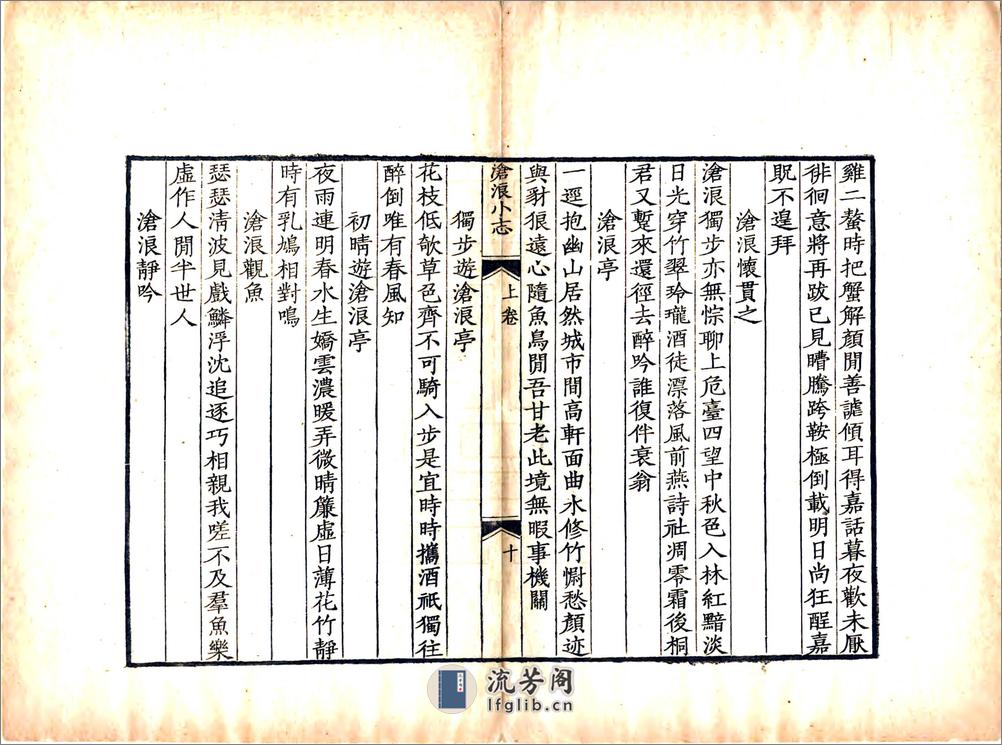 雞二螯時把蟹解顏閒善謔傾耳得嘉話暮夜歡未厭
徘徊意將再跋已見瞢騰跨鞍極倒載明日尚狂酲嘉
貺不遑拜
滄浪懷貫之
滄浪獨步亦無悰聊上危臺四望中秋色入林紅黯淡
日光穿竹翠玲瓏酒徒漂落風前燕詩社凋零霜後桐
君又蹔來還徑去醉吟誰復伴衰翁
滄浪亭
一逕抱幽山居然城市間高軒面曲水修竹慰愁顏迹
與豺狼遠心隨魚鳥閒吾甘老此境無暇事機關
滄浪小志
上卷
十
獨步遊滄浪亭
花枝低欹草色齊不可騎入步是宜時時攜酒祇獨往
醉倒唯有春風知
初晴遊滄浪亭
夜雨連明春水生嬌雲濃暖弄微晴簾虛日薄花竹靜
時有乳鳩相對鳴
滄浪觀魚
瑟瑟清波見戲鱗浮沈追逐巧相親我嗟不及羣魚樂
虛作人閒半世人
滄浪靜吟
流芳阁
lfglib.cn